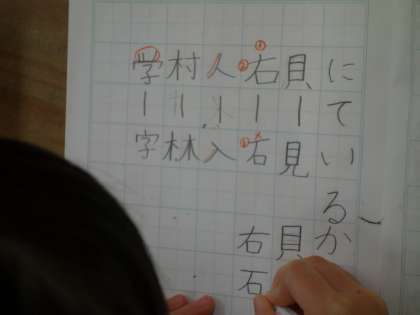 にているか
貝｜見 貝
右｜右 右石
人｜入
村｜林
学｜字